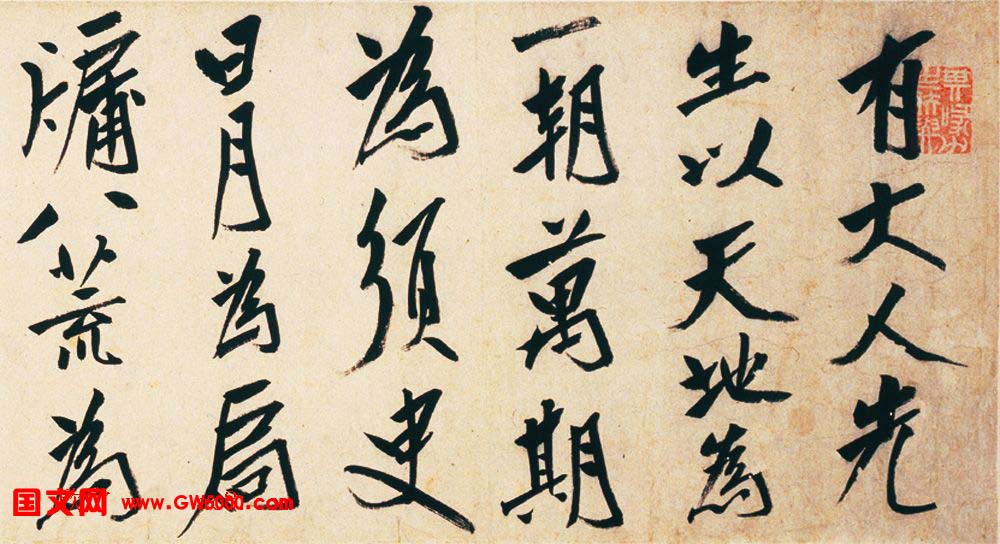 有大人先
生以天地為
一朝萬期
為須臾
日月為扃
牖八荒為
国文网 www.GW5000.com